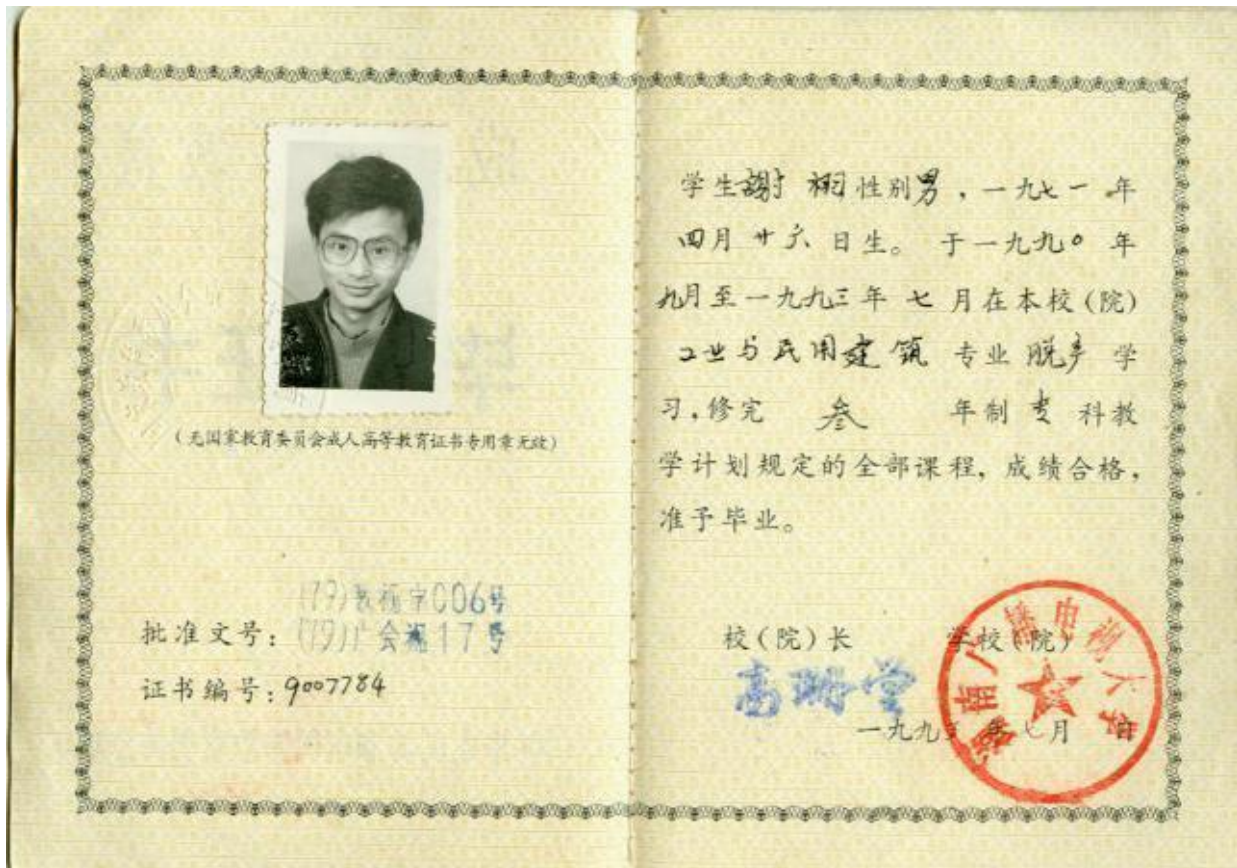 (无国家教育委员会成人高等教育证书专用章无效)
批准文号:(79)教视字006号
(79)广会视17号
证书编号:9007784
学生謝栩性别男,一九七一年
四月廿六日生。于一九九〇年
九月至一九九三年七月在本校(院)
工业与民用建筑专业脱产学
习,修完叁年制专科教
学计划规定的全部课程,成绩合格,
准予毕业。
校(院)长 学校(院)
高珊堂
一九九三年七月 日
广播电视大学